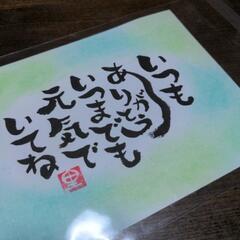 いつも
ありがとう
いつまでも
元気で
いてね